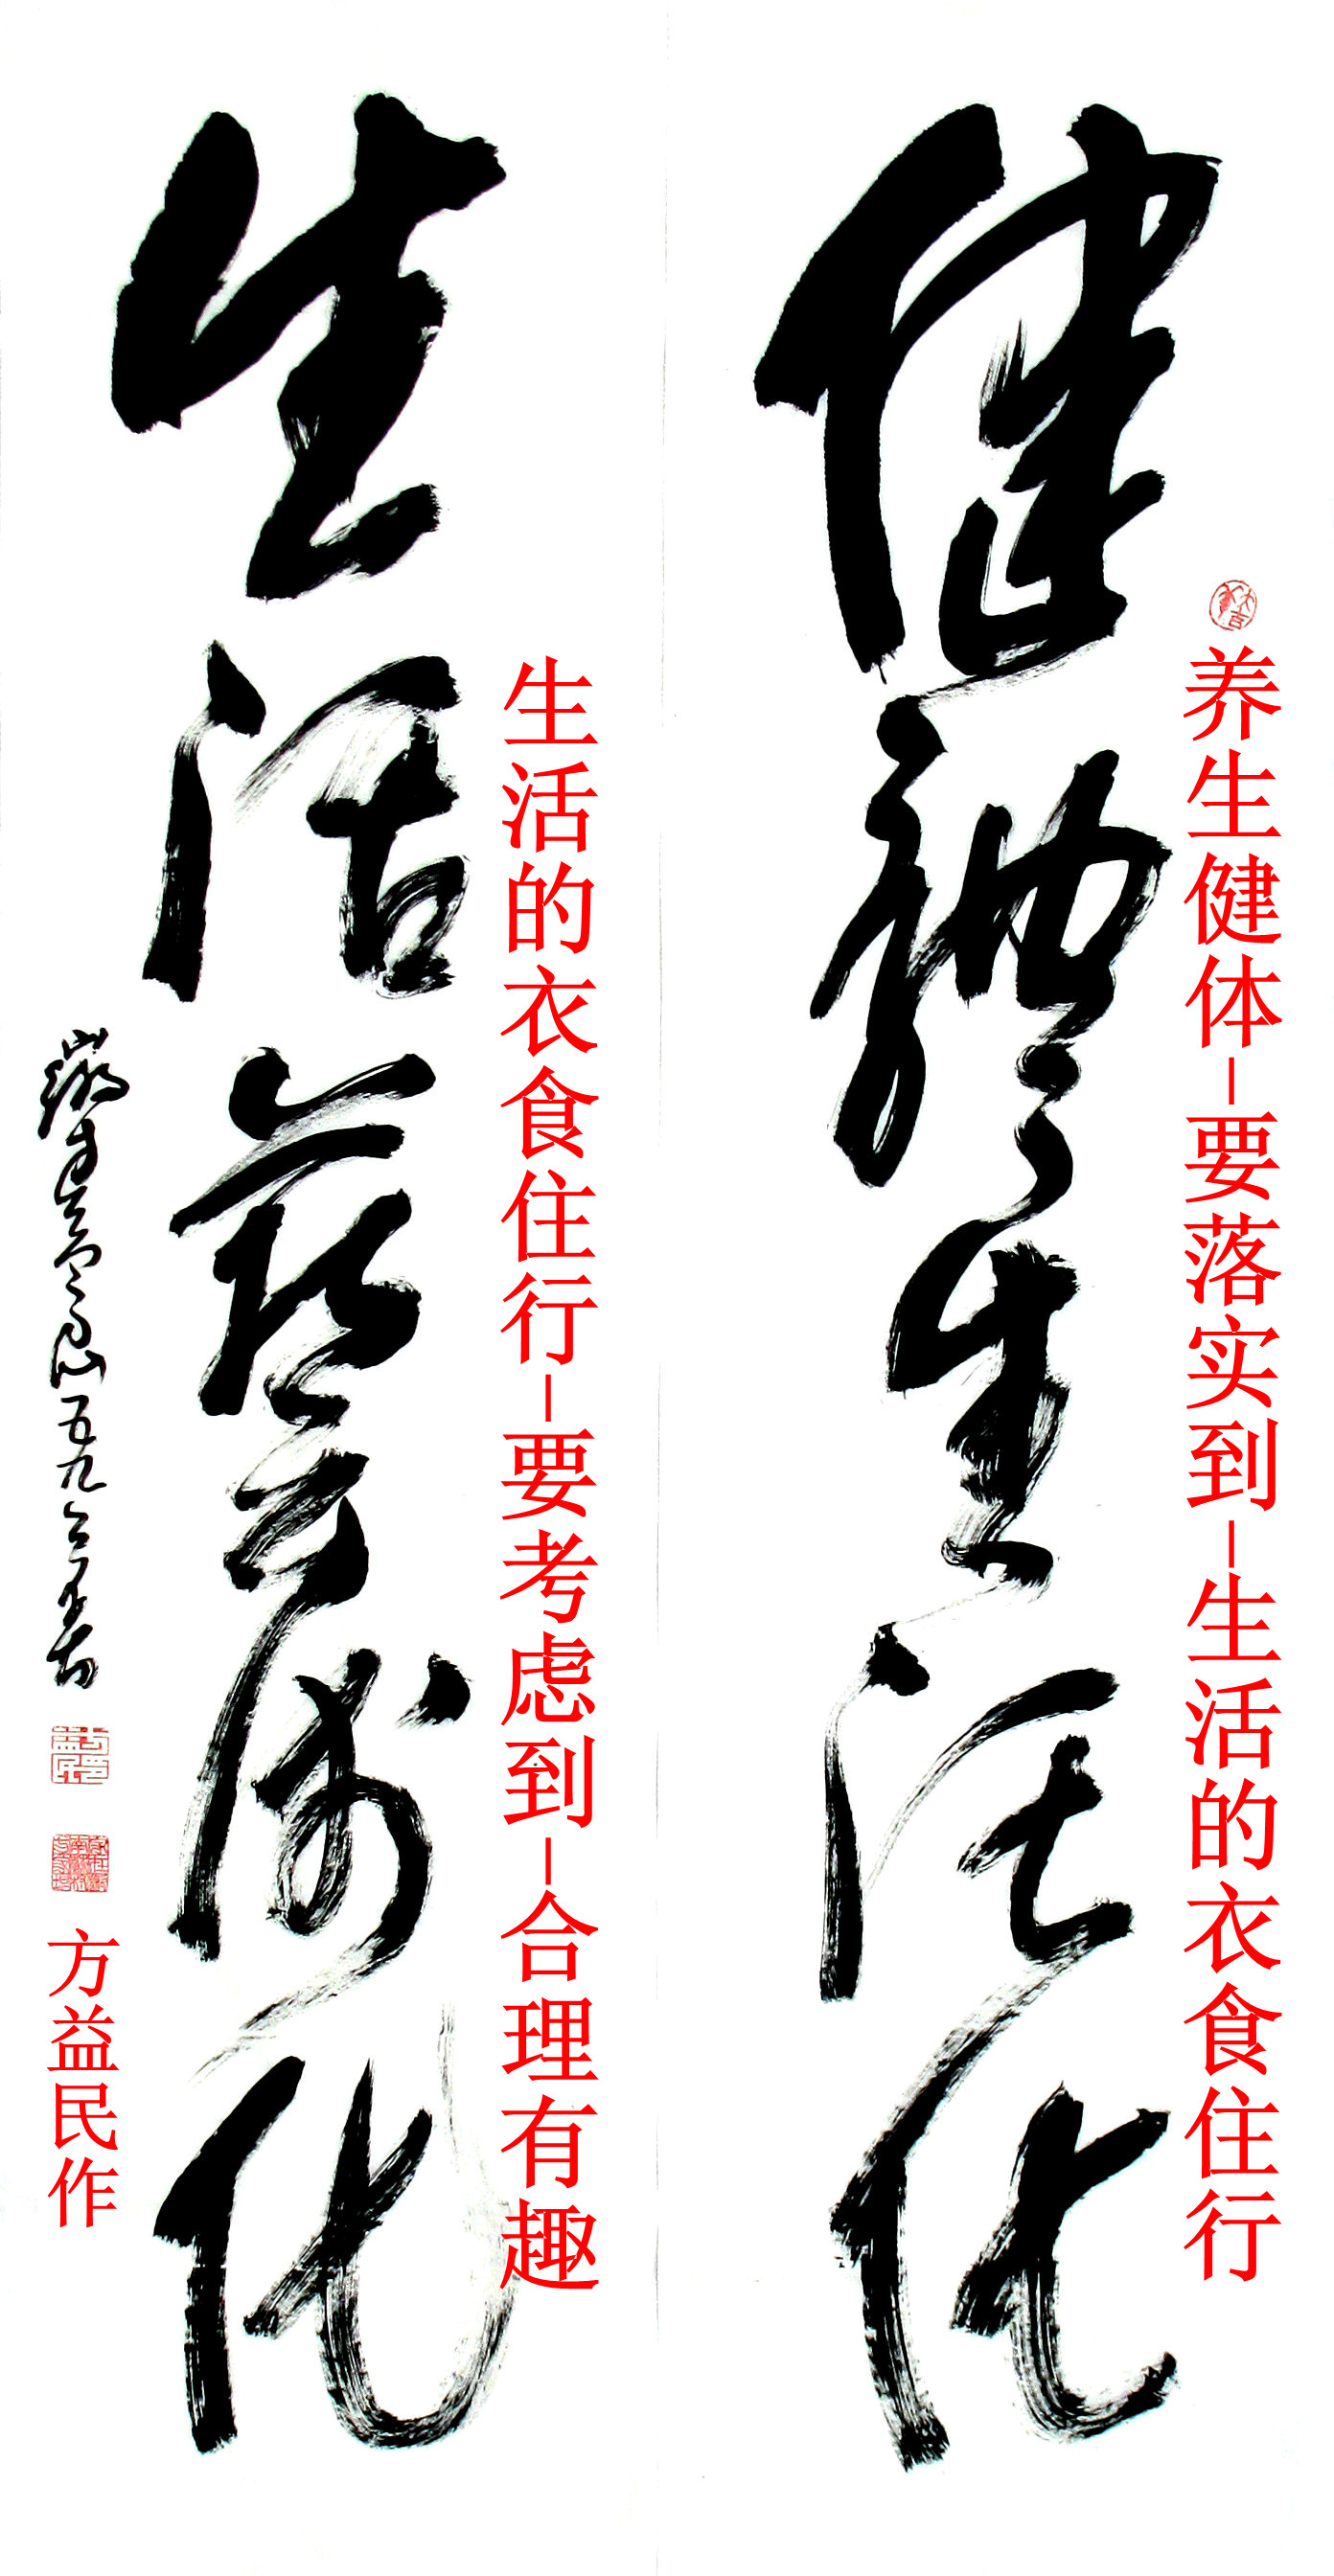 健體生活化
养生健体-要落实到-生活的衣食住行
生活藝術化
生活的衣食住行-要考虑到-合理有趣
方益民作